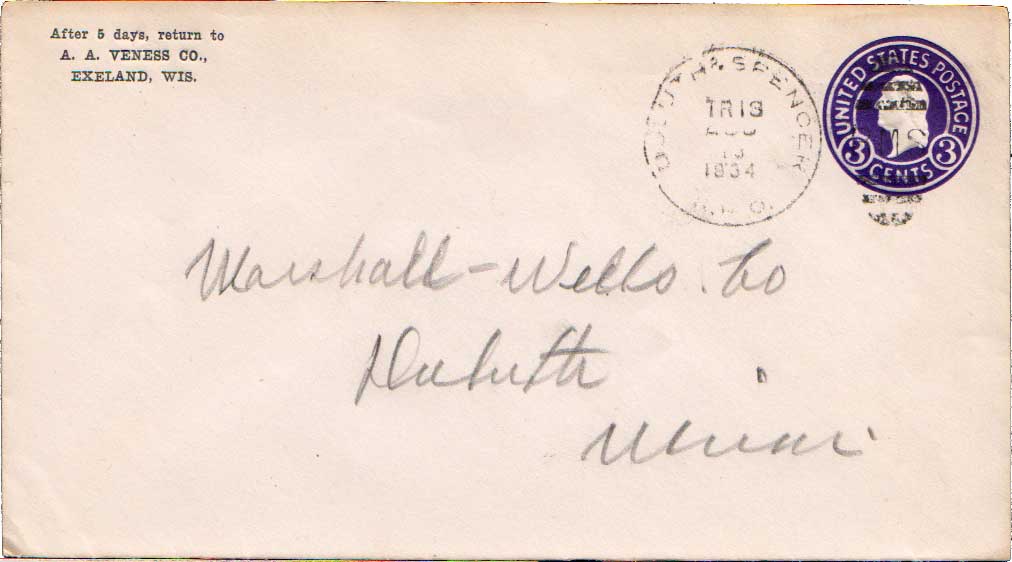 After 5 days, return to
A. A. VENESS CO.,
EXELAND, WIS.
DULUTH & SPENCER
TR19
AUG
13
1934
R.P.O.
UNITED STATES POSTAGE
3 CENTS 3
Marshall-Wells Co
Duluth
Minn.